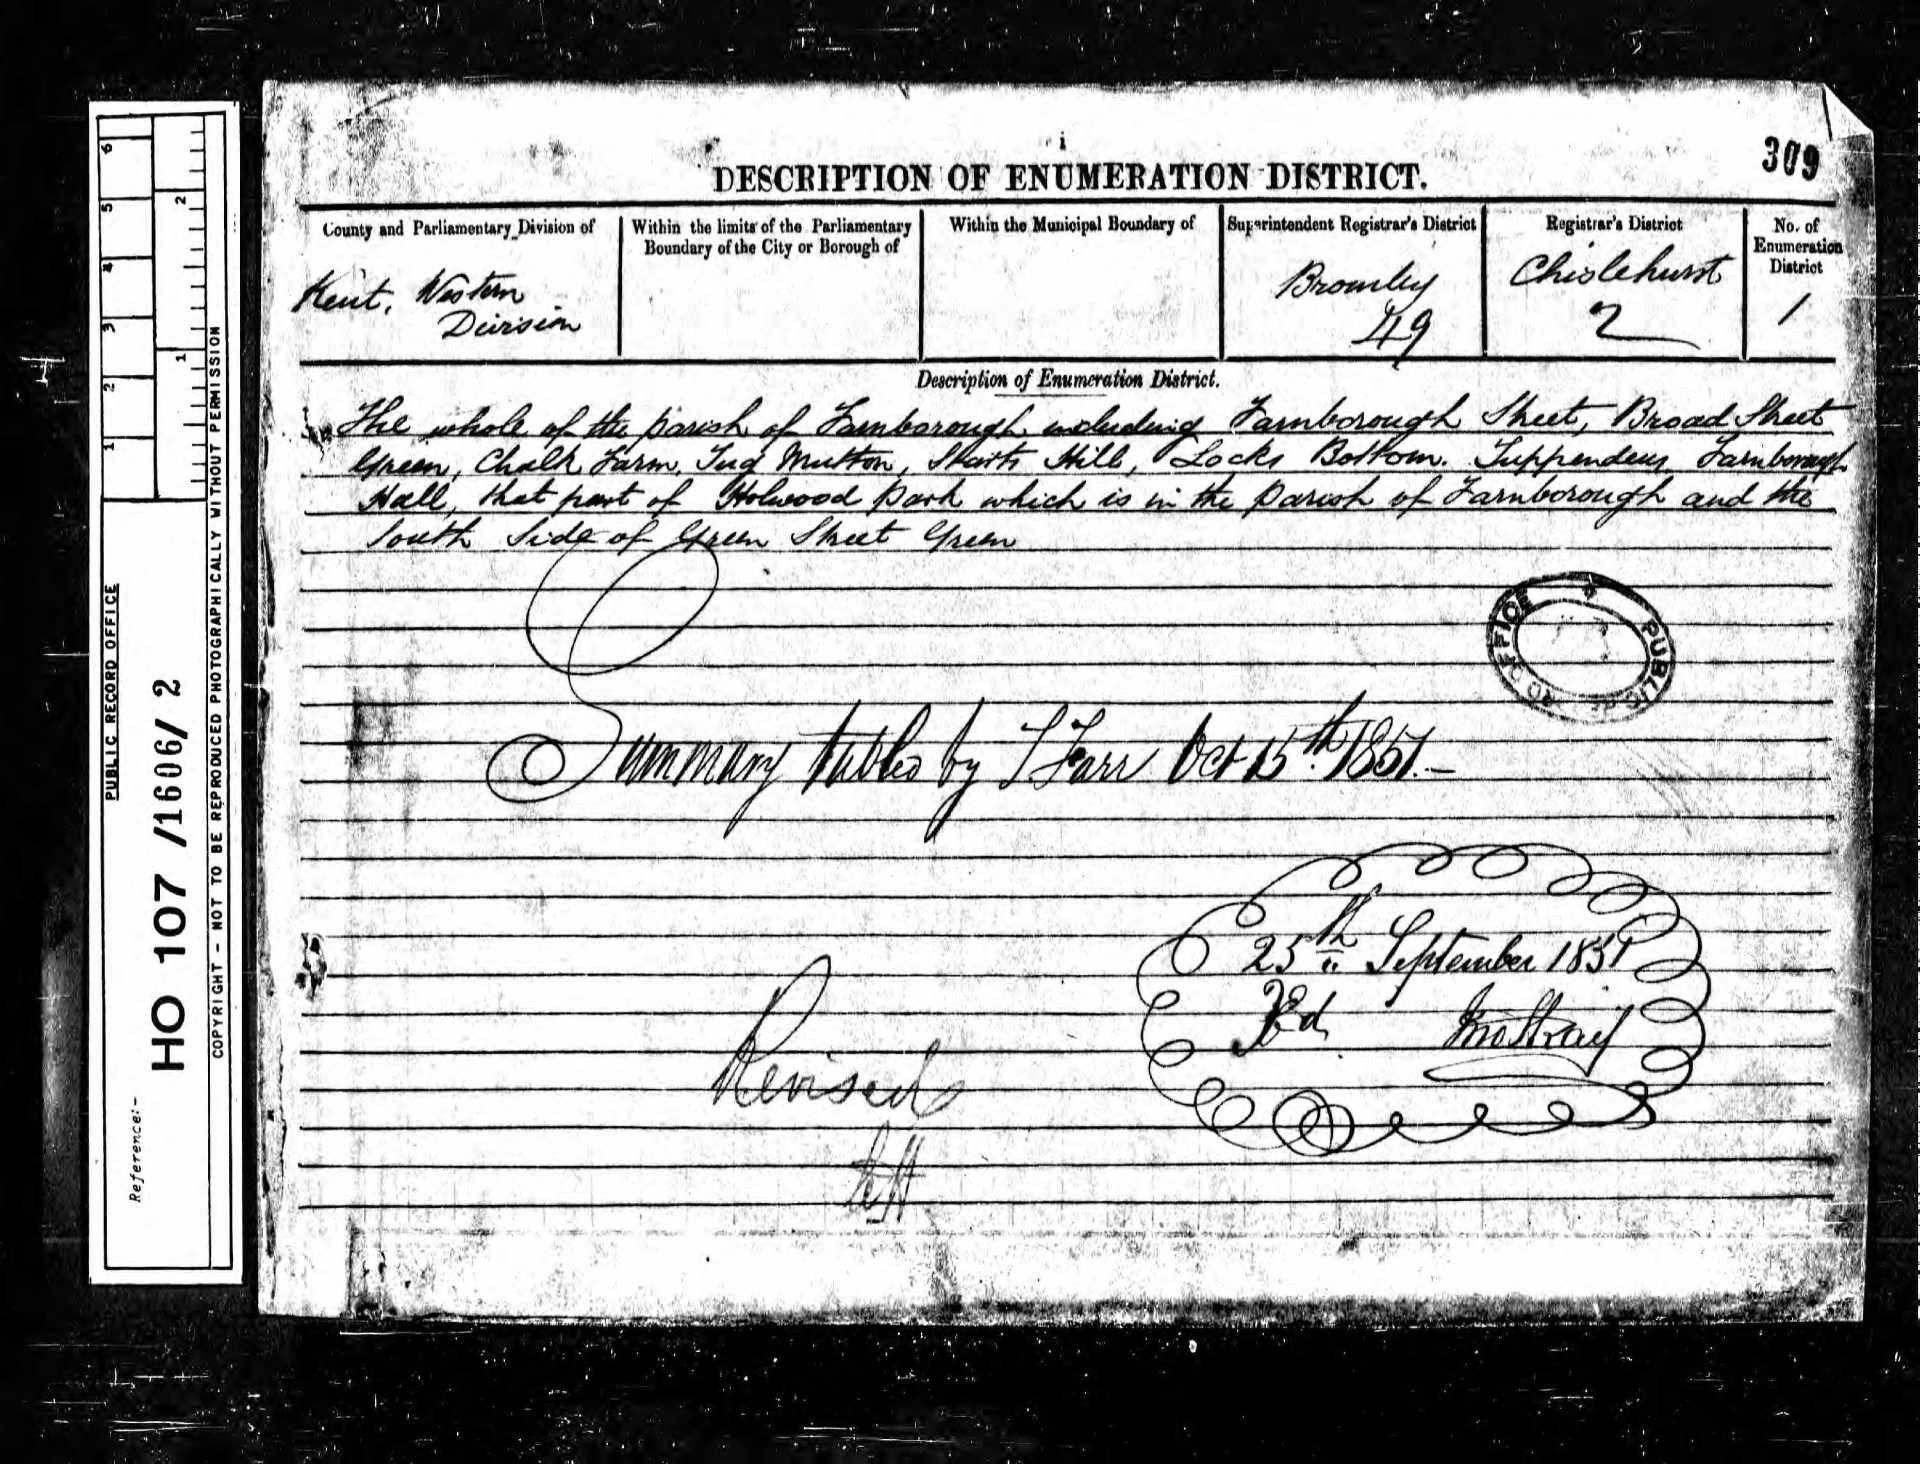 i
309
DESCRIPTION OF ENUMERATION DISTRICT.
County and Parliamentary Division of
Kent, Western
Division
Within the limits of the Parliamentary
Boundary of the City or Borough of
Within the Municipal Boundary of
Superintendent Registrar's District
Bromley
49
Registrar's District
Chislehurst
2
No. of
Enumeration
District
1
Description of Enumeration District.
The whole of the parish of Farnborough including Farnborough Street, Broad Street
Green, Chalk Farm, Tug Mutton, Starts Hill, Locks Bottom. Tuppendens Farnborough
Hall, that part of Holwood Park which is in the Parish of Farnborough and the
South Side of Green Street Green
PUBLIC RECORD OFFICE
Summary tables by T Farr Oct 15th. 1851.-
25th September 1851
Revised
6
5
4
3
2
1
2
1
PUBLIC RECORD OFFICE
Reference:-
HO 107 /1606/ 2
COPYRIGHT - NOT TO BE REPRODUCED PHOTOGRAPHICALLY WITHOUT PERMISSION